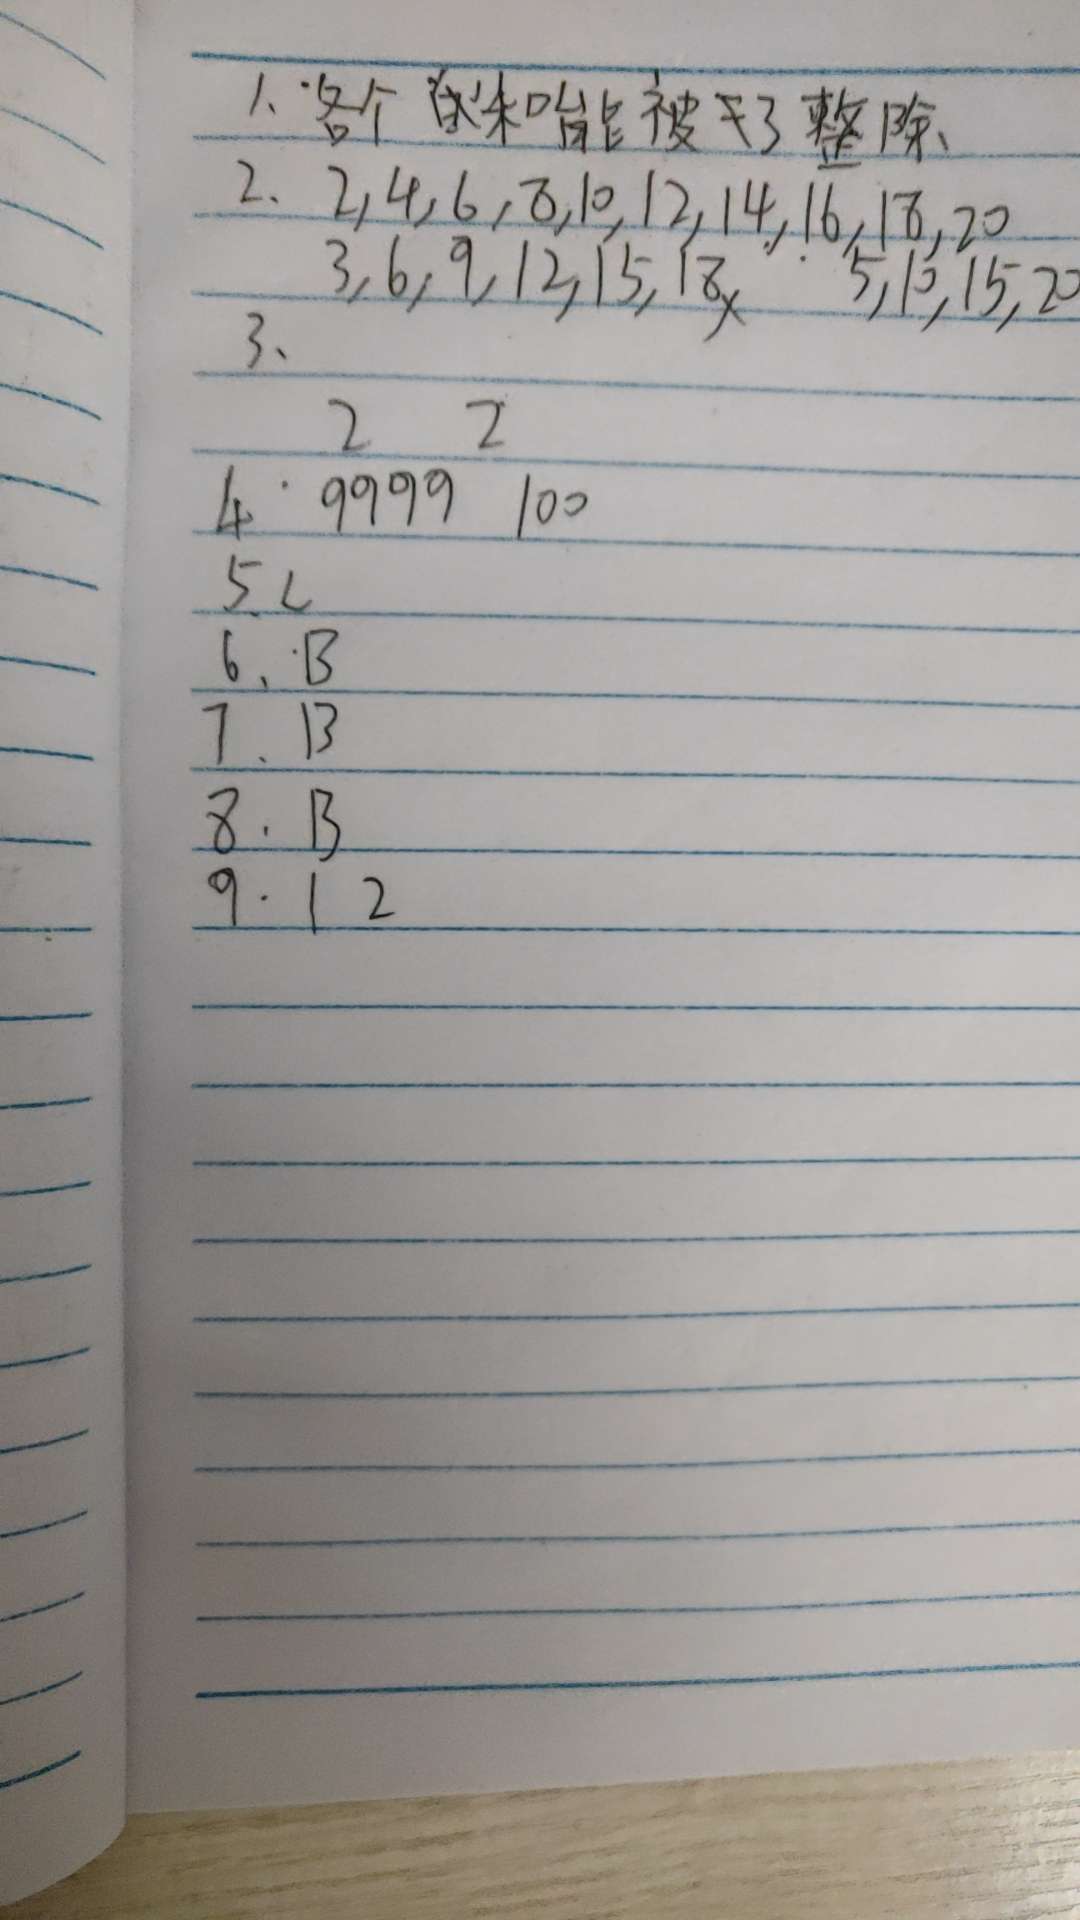 1、各个 能被于3整除、
2、2,4,6,8,10,12,14,16,18,20
3,6,9,12,15,18, 5,10,15,20
3、
2 2
4. 9999 100
5. C
6、B
7、B
8. B
9. 1 2